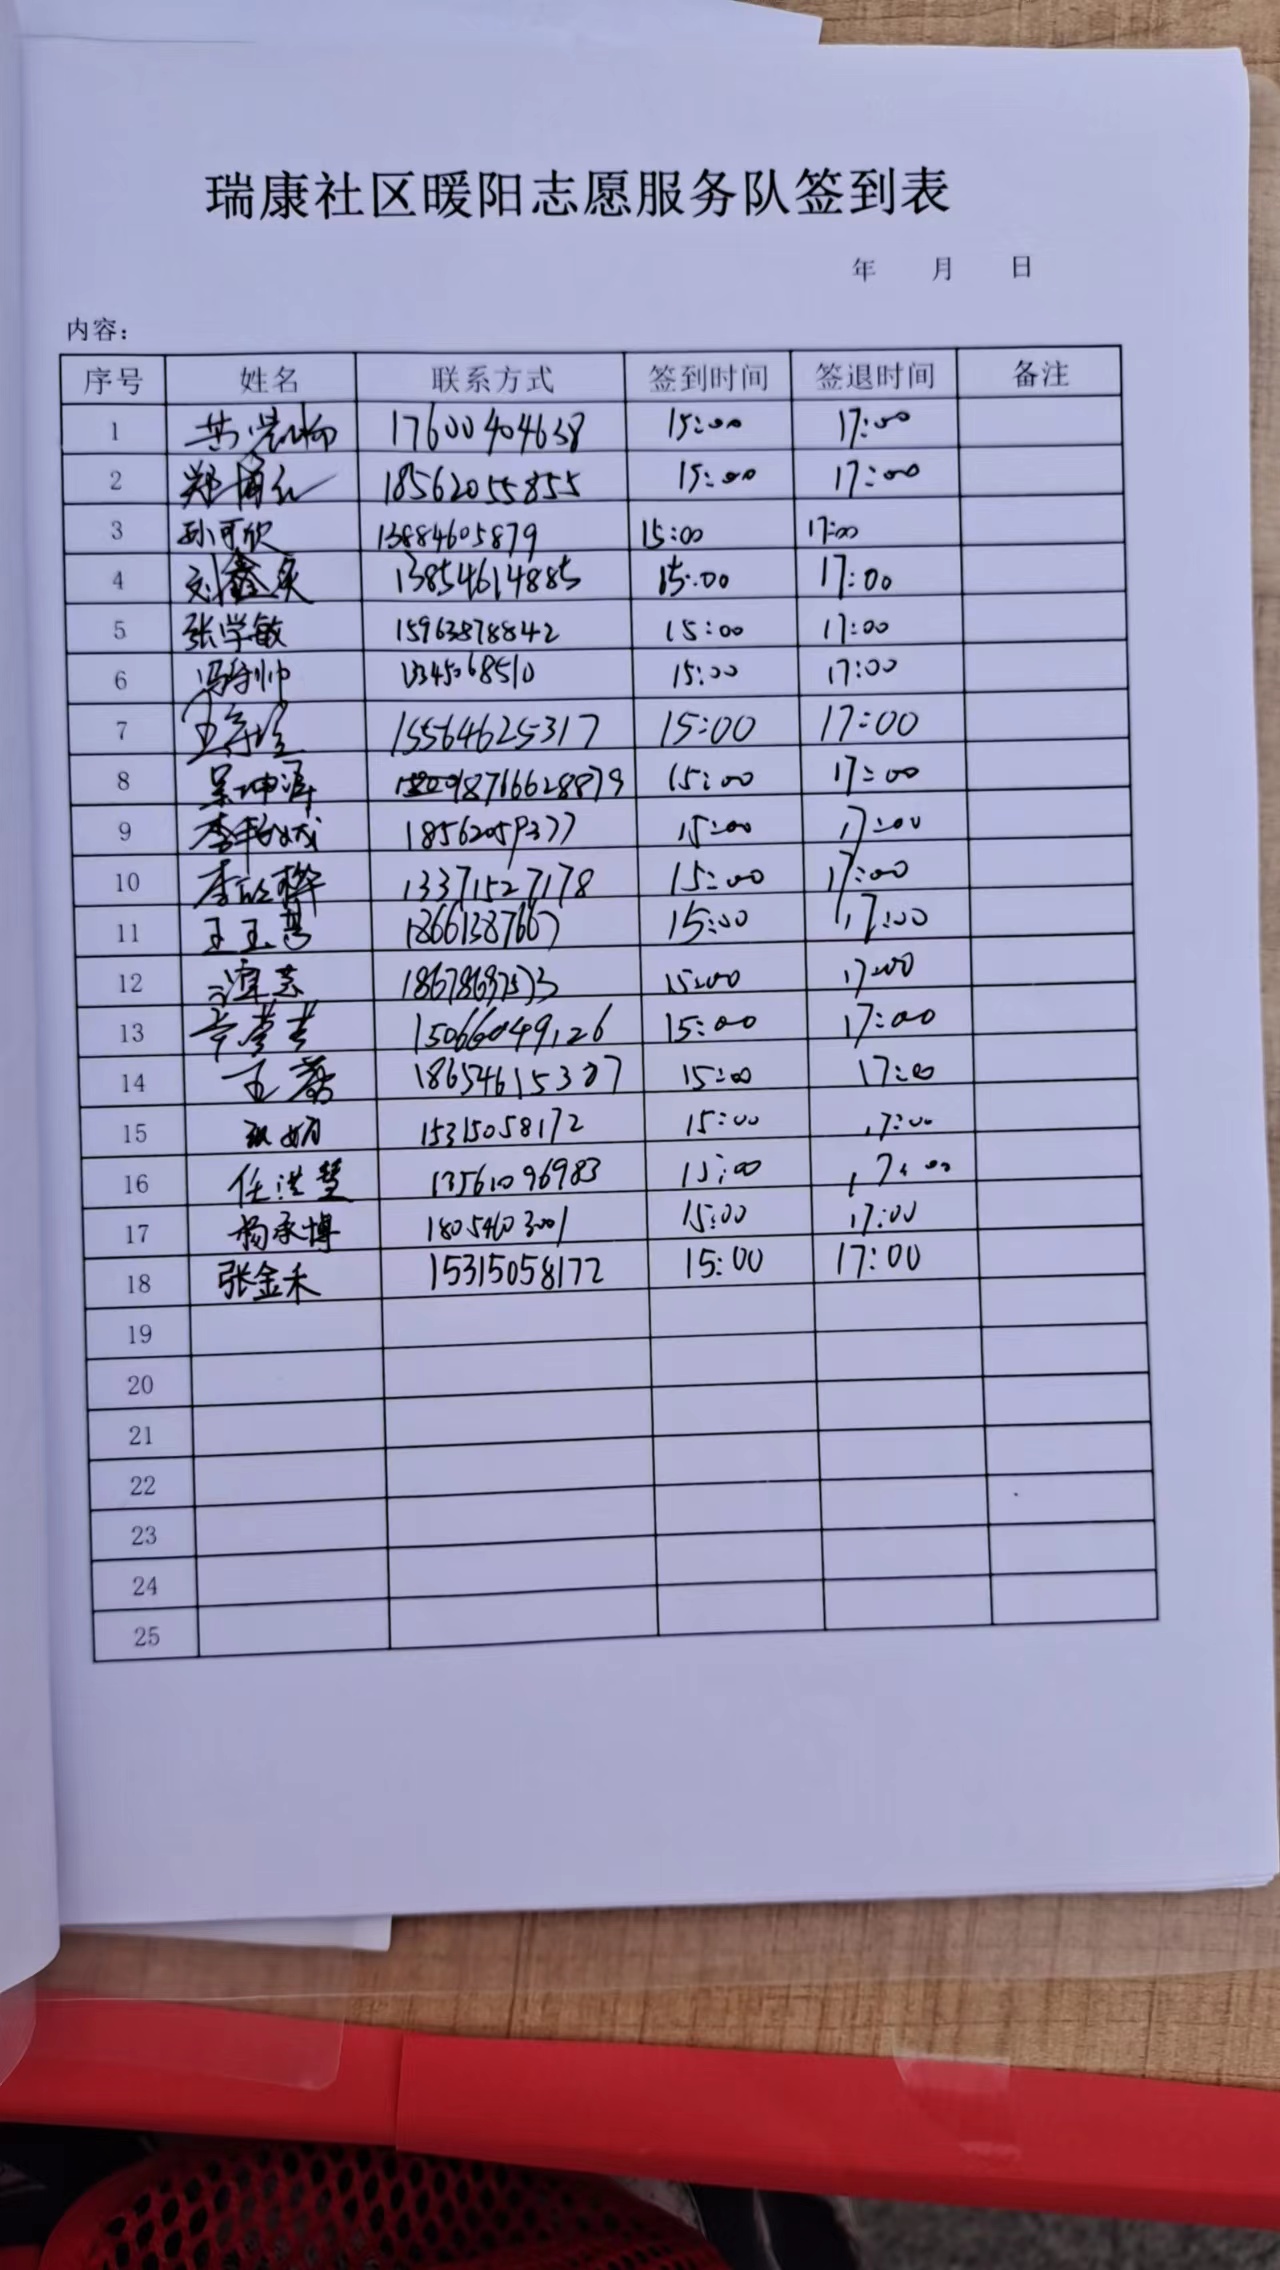 瑞康社区暖阳志愿服务队签到表
年 月 日
内容：
序号 姓名 联系方式 签到时间 签退时间 备注
1 17600404638 15:00 17:00
2 郑 18562055855 15:00 17:00
3 孙可欣 13884605879 15:00 17:00
4 刘鑫 13854614885 15:00 17:00
5 张学敏 15963878842 15:00 17:00
6 冯 15:00 17:00
7 王 15564625317 15:00 17:00
8 吴坤泽 18766628879 15:00 17:00
9 李 18562059377 15:00 17:00
10 李 13371527178 15:00 17:00
11 王玉 18661387667 15:00 17:00
12 15:00 17:00
13 15066049126 15:00 17:00
14 王 18654615307 15:00 17:00
15 15315058172 15:00 17:00
16 任洪慧 13561096983 15:00 17:00
17 杨承博 15:00 17:00
18 张金禾 15315058172 15:00 17:00
19
20
21
22
23
24
25